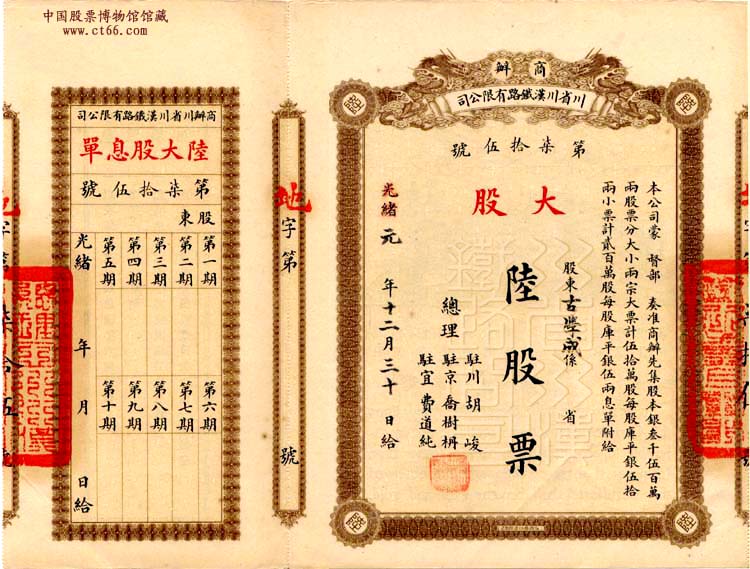 中国股票博物馆馆藏
www.ct66.com
商辦川省川漢鐵路有限公司
陸大股息單
第柒拾伍號
股東
第一期
第二期
第三期
第四期
第五期
第六期
第七期
第八期
第九期
第十期
光緒 年 月 日給
地字第 號
地字第柒拾伍號
商辦
川省川漢鐵路有限公司
第柒拾伍號
大股
本公司蒙 督部 奏准商辦先集股本銀叁千伍百萬
兩股票分大小兩宗大票計伍拾萬股每股庫平銀伍拾
兩小票計貳百萬股每股庫平銀伍兩息單附給
股東古學成係 省
陸股票
總理
駐川 胡峻
駐京 喬樹枬
駐宜 費道純
光緒元年十二月三十日給
陸
陸
陸
陸